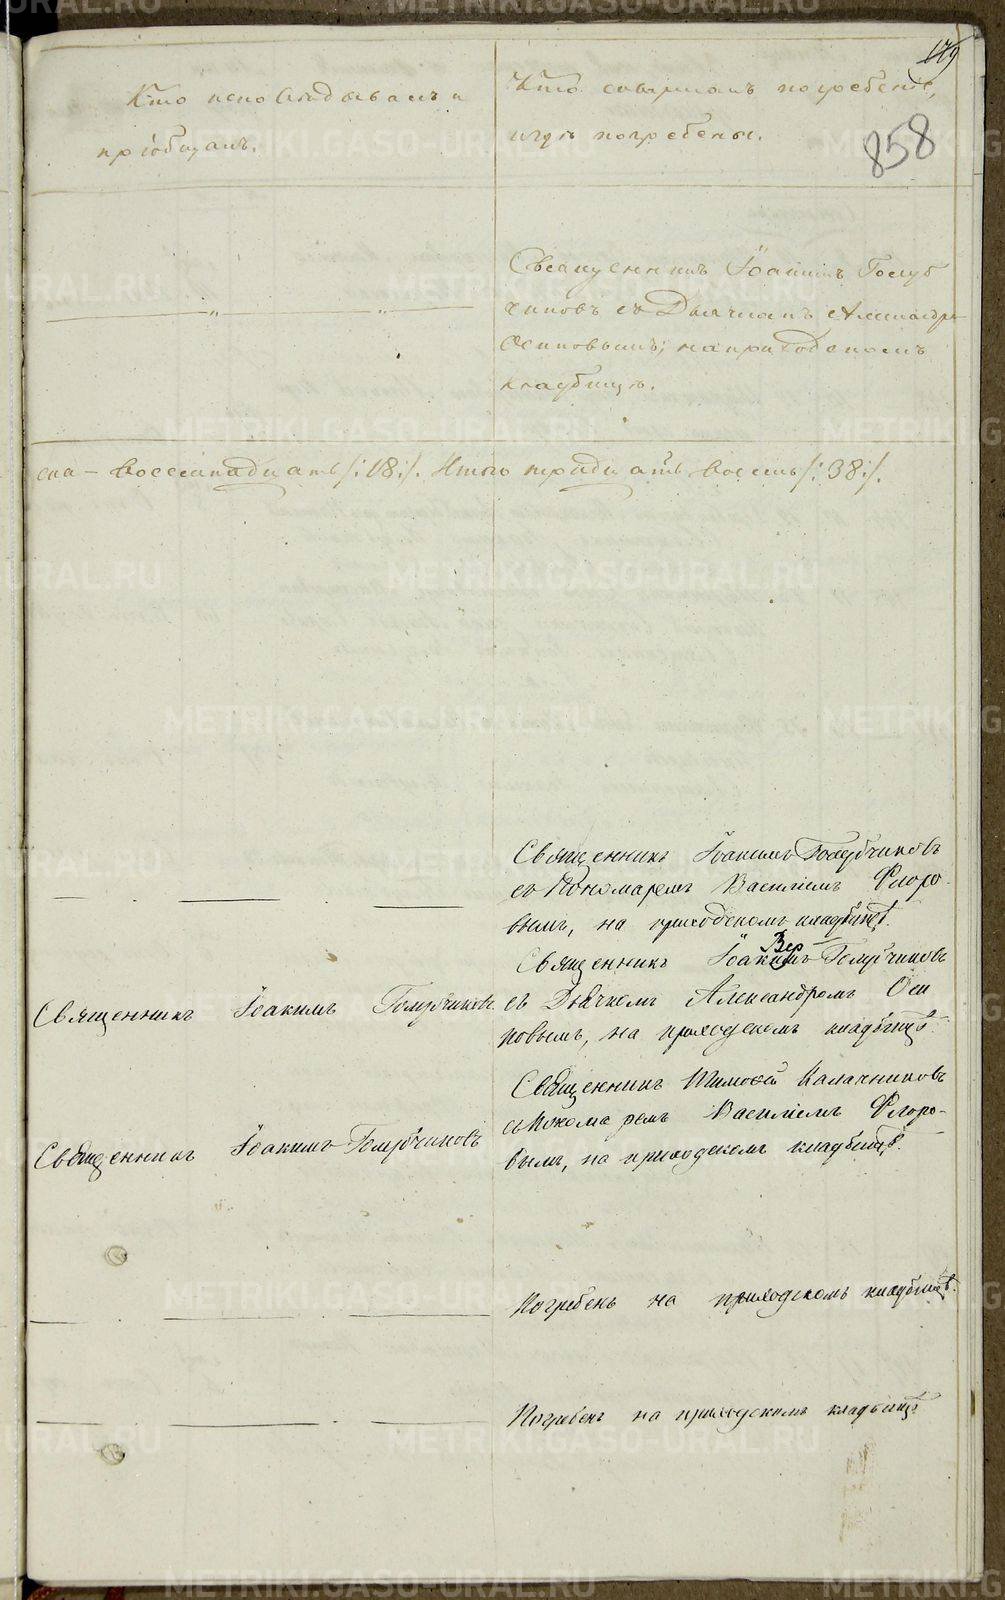 179
858
Кто исповѣдывалъ и
пріобщалъ.
Кто совершалъ погребеніе,
и гдѣ погребены.
Священникъ Іоакимъ Голуб
чиковъ съ Дьячкомъ Александро
Осиповымъ; на приходскомъ
кладбищѣ.
ска – восемнадцать /:18:/. Итого тридцать восемь /:38:/.
Священникъ Іоакимъ Голубчиковъ
съ Пономаремъ Василіемъ Флоро-
вымъ, на приходскомъ кладбищѣ.
Священникъ Іоакимъ Голубчиковъ
Священникъ Іоакимъ Голубчиковъ
съ Дьячкомъ Александромъ Оси
повымъ, на приходскомъ кладбищѣ.
Священникъ Іоакимъ Голубчиковъ
Священникъ Тимоѳей Калачниковъ
съ Пономаремъ Василіемъ Флоро-
вымъ, на приходскомъ кладбищѣ.
Погребенъ на приходскомъ кладбищѣ.
Погребенъ на приходскомъ кладбищѣ
METRIKI.GASO-URAL.RU